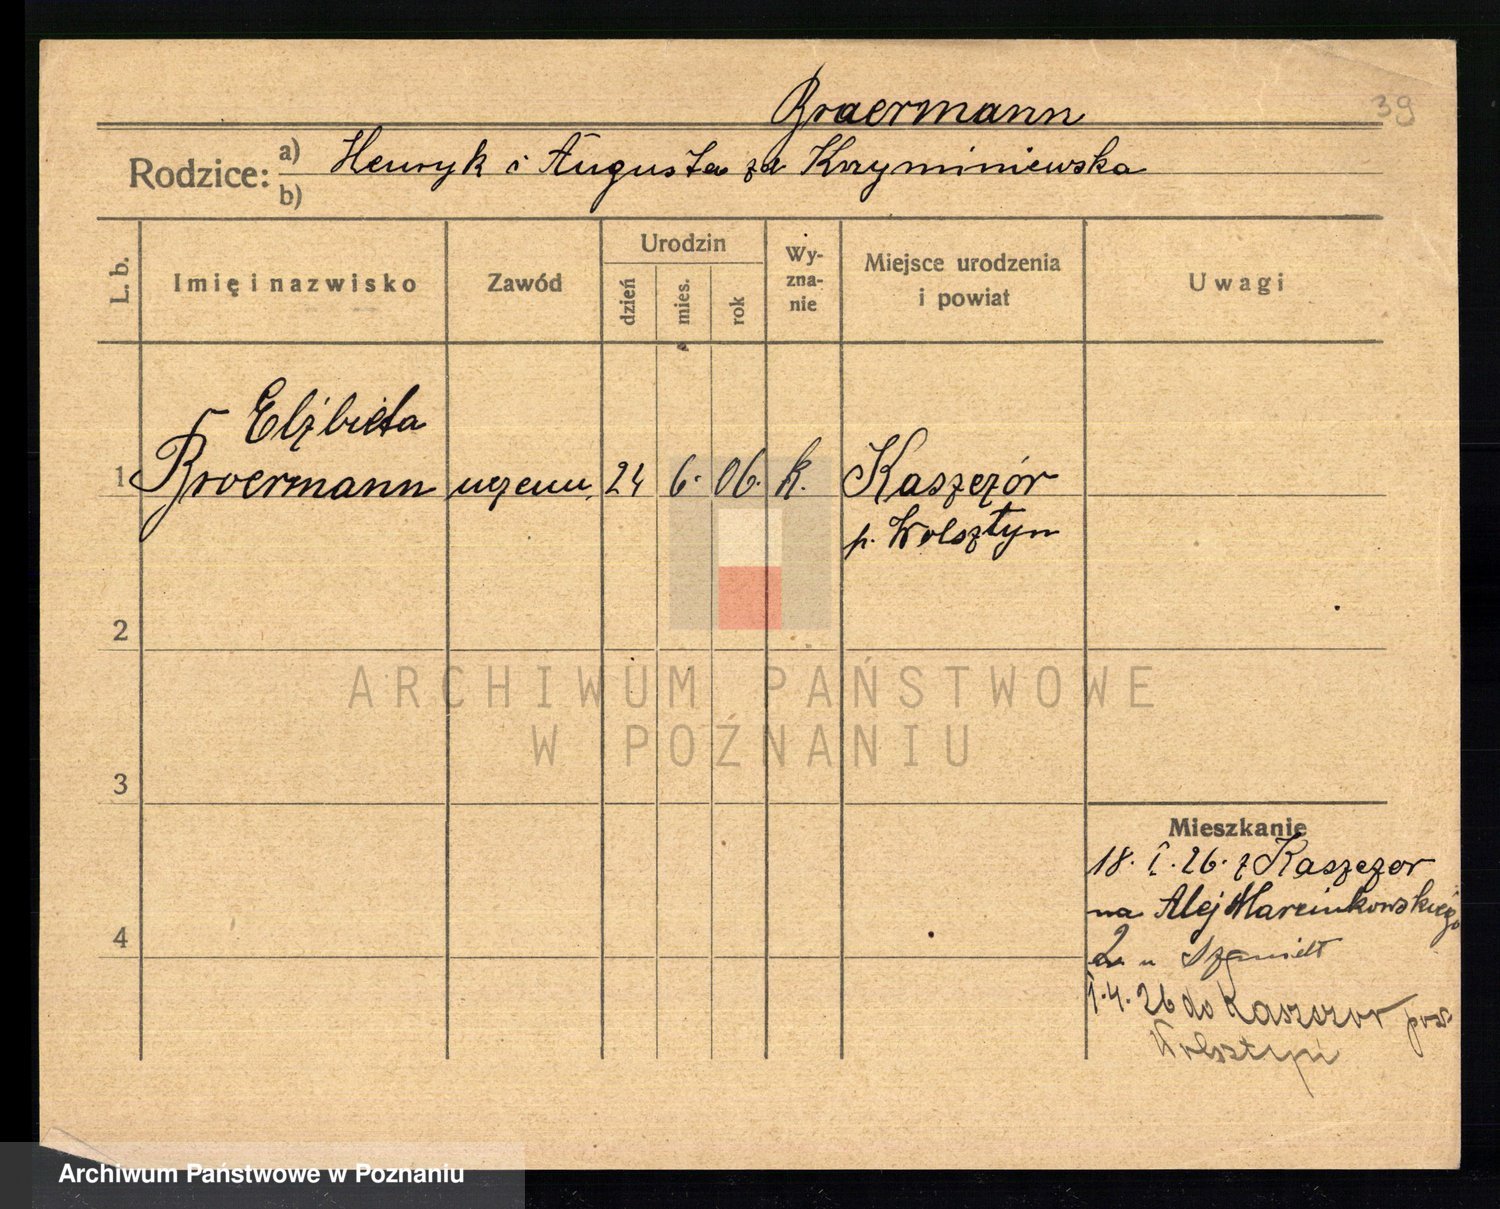 39
Broermann
Rodzice: a) Henryk i Augusta zd Krzyminiewska
b)
L. b.
Imię i nazwisko
Zawód
Urodzin
dzień
mies.
rok
Wy-
zna-
nie
Miejsce urodzenia
i powiat
Uwagi
Elżbieta
1 Broermann uczenn. 24 6. 06. k. Kaszczór
p. Wolsztyn
2
3
4
Mieszkanie
18. I. 26. z Kaszczor
na Alej Marcinkowskiego
2 u Szmidt
1.4. 26 do Kaszczor pow.
Wolsztyn
ARCHIWUM PAŃSTWOWE
W POZNANIU
Archiwum Państwowe w Poznaniu